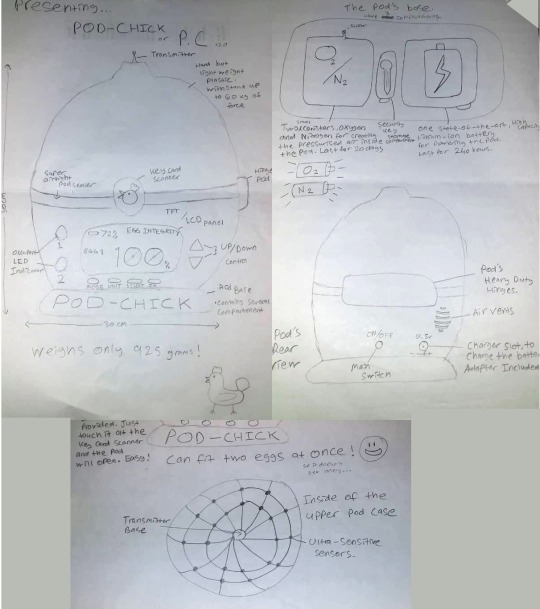 Presenting...
POD-CHICK
or P.C...
Transmitter
Hard but
lightweight
withstand up
to 60 kg of
force
Super
airtight
Pod sealer
Key card
scanner
Hinge
Pod
30cm
TFT
LCD panel
72%
EGG INTEGRITY
EGG 1
100%
UP/Down
control
LED
Indicator
1
2
POD-CHICK
Pod Base
•contains several
compartment
30 cm
Weighs only 925 grams!
The Pod's base.
O2
/N2
Two canisters, oxygen
and Nitrogen for creating
the pressurized air inside
the pod. Last for 20 days
Security
key
one state-of-the-art, High
capacity
lithium-ion battery
for powering the Pod.
Last for 240 hours.
O2
N2
Pod's
Heavy Duty
Hinges.
Air vents
Pod's
Rear
View
ON/OFF
Main
Switch
Charger Slot, to
charge the batter
Adapter Included
Provided. Just
touch it at the
key card scanner
and the Pod
will open. Easy!
POD-CHICK
Can fit two eggs at once!
Transmitter
Base
Inside of the
upper pod case
Ultra-Sensitive
Sensors.